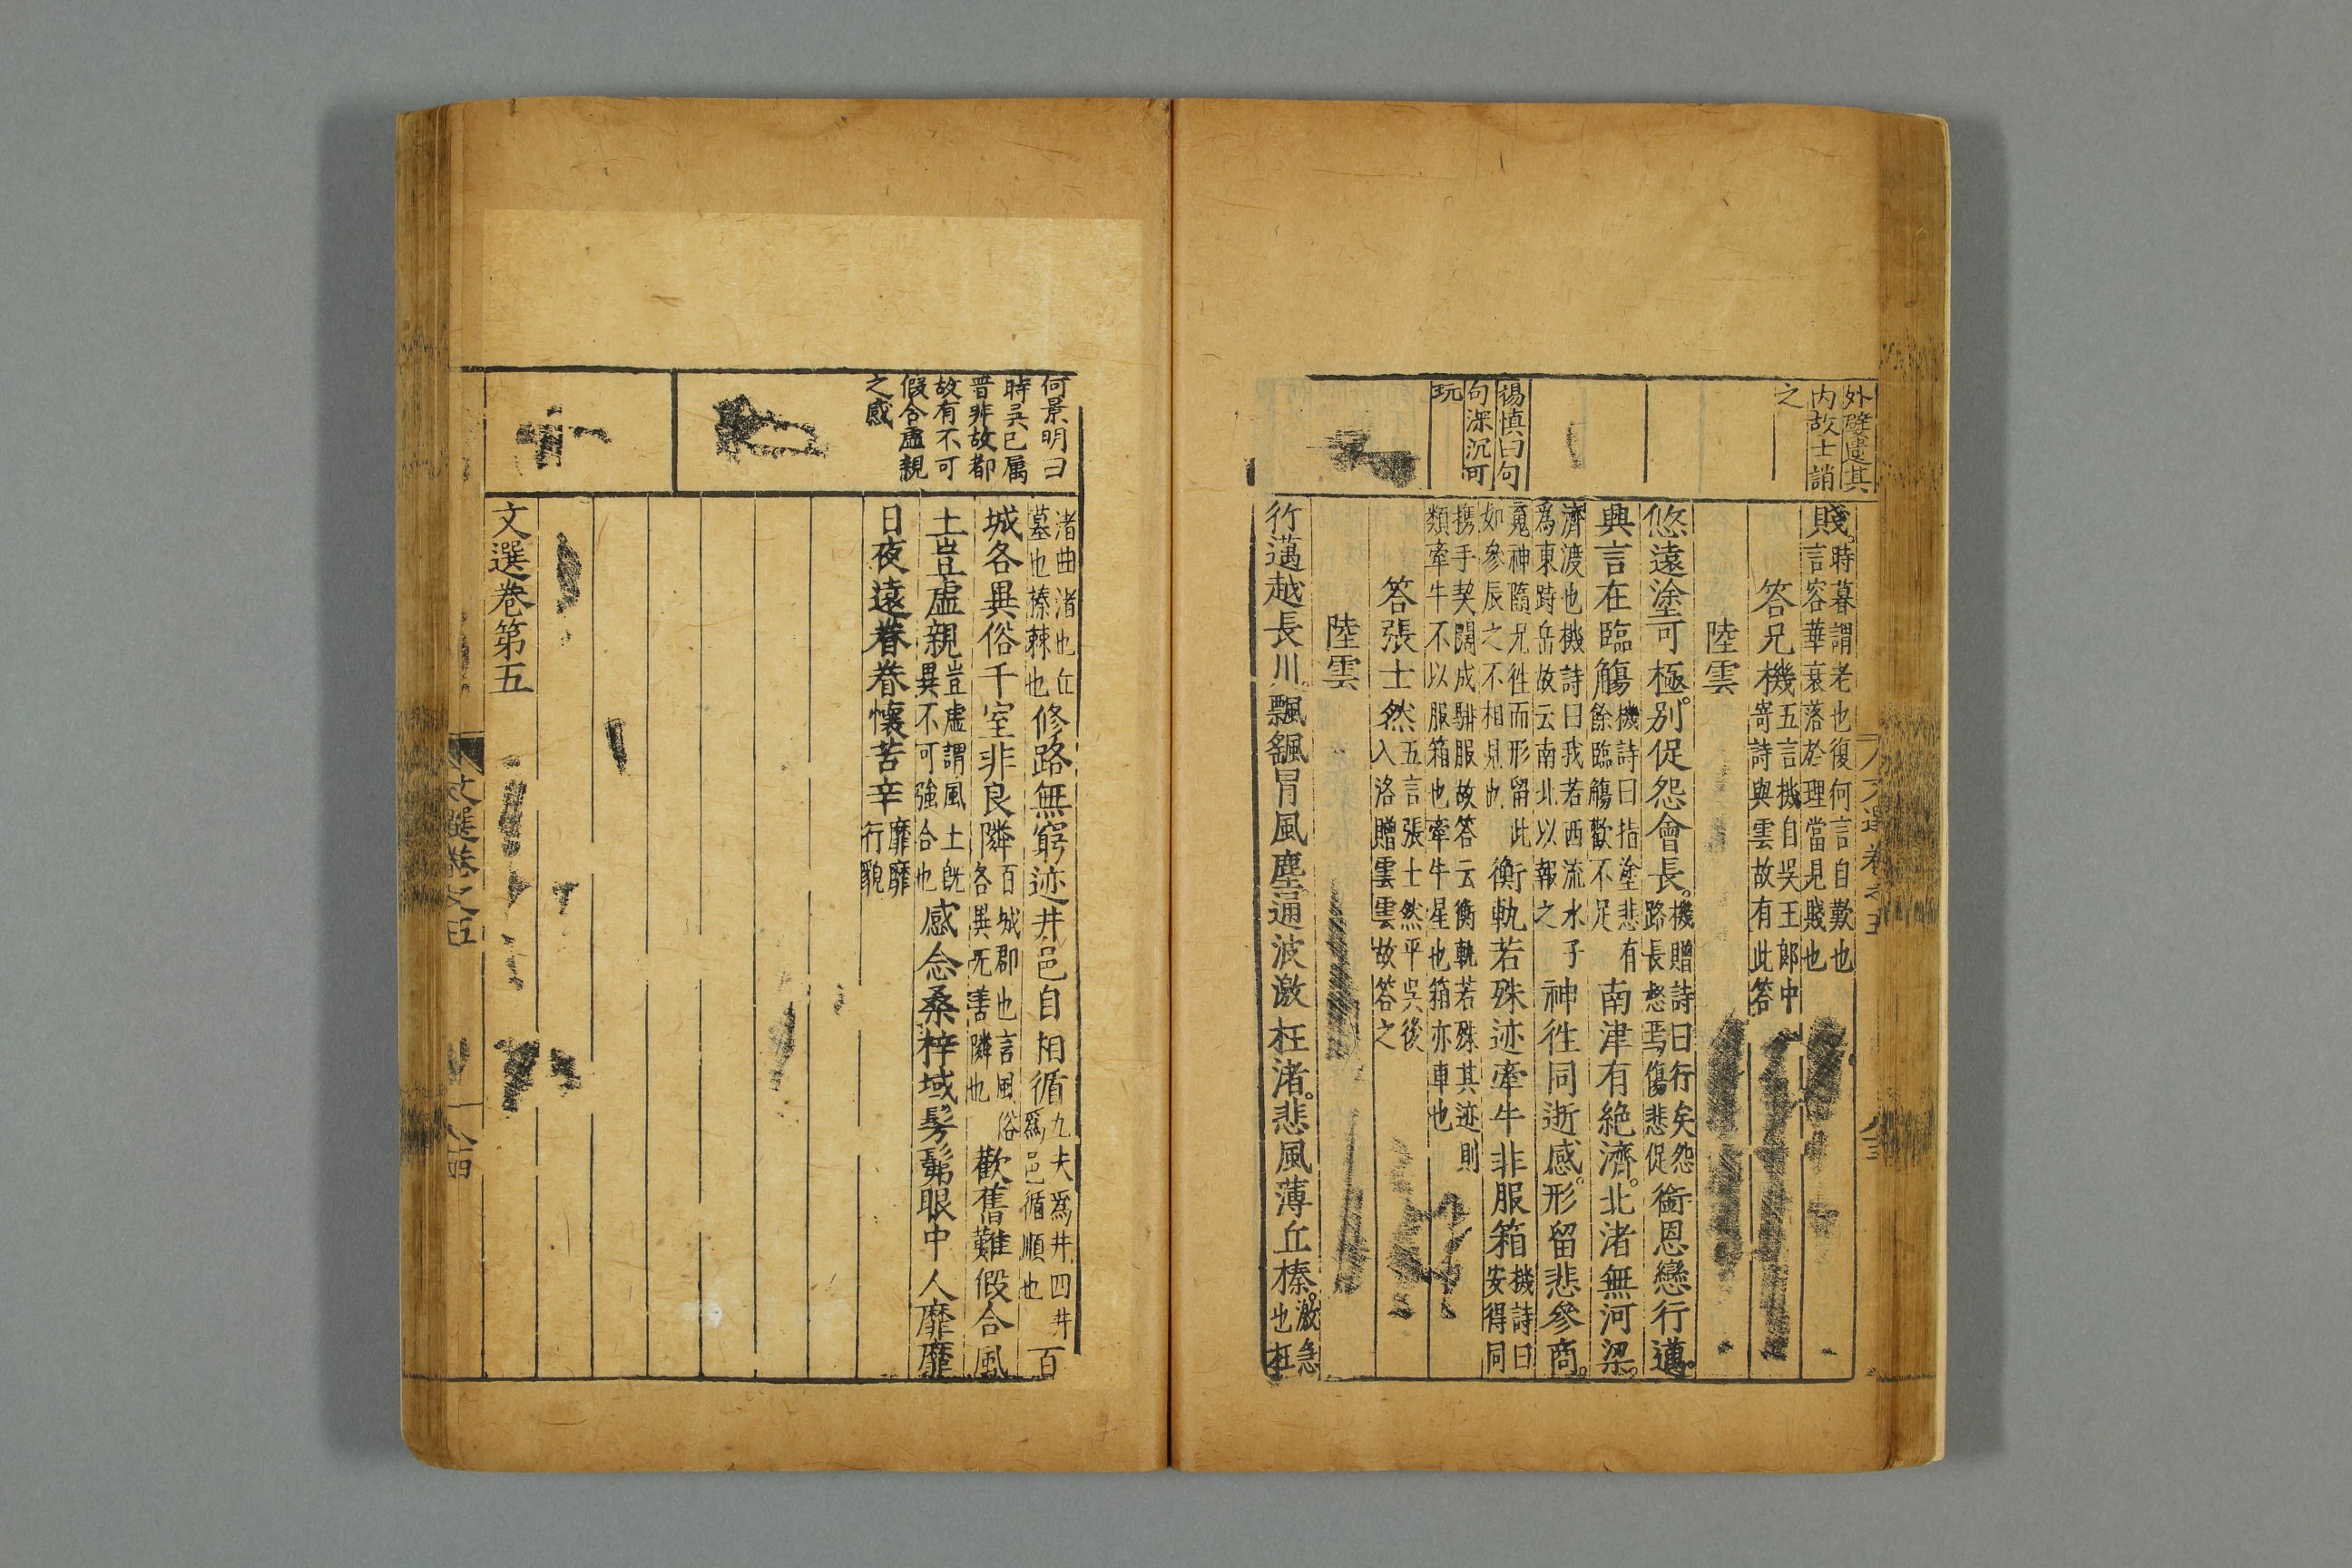 外嬖遺其
内故士誚
之
楊慎曰句
句深沉可
玩
賤時暮謂老也復何言自歎也
言容華衰落於理當見賤也
答兄機五言機自吳王郎中
寄詩與雲故有此答
陸雲
悠遠塗可極別促怨會長機贈詩曰行矣怨
路長惄焉傷悲促銜恩戀行邁
興言在臨觴機詩曰指塗悲有
餘臨觴歡不足南津有絕濟北渚無河梁
濟渡也機詩曰我若西流水子
爲東跱岳故云南北以報之神往同逝感形留悲參商
䰟神隨兄徃而形留此
如參辰之不相見也衡軌若殊迹牽牛非服箱機詩曰
安得同
携手契闊成騑服故答云衡軌若殊其迹則
類牽牛不以服箱也牽牛星也箱亦車也
答張士然五言張士然平吳後
入洛贈雲雲故答之
陸雲
行邁越長川飄颻冒風塵通波激枉渚悲風薄丘榛激急
也枉
何景明曰
時吳已屬
晋非故都
故有不可
假合虛親
之感
渚曲渚也丘
墓也榛棘也修路無窮迹井邑自相循九夫爲井四井
爲邑循順也百
城各異俗千室非良隣百城郡也言風俗
各異无善隣也歡舊難假合風
土豈虛親豈虛謂風土旣
異不可強合也感念桑梓域髣髴眼中人靡靡
日夜遠眷眷懷苦辛靡靡
行貌
文選卷第五